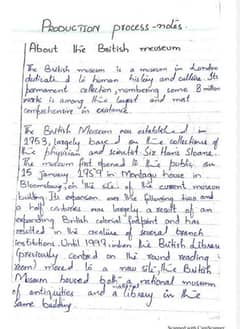 PRODUCTION process-notes.
About the British museum
The British museum is a museum in London
dedicated to human history and culture. Its
permanent collection, numbering some 8 million
works is among the largest and most
comprehensive in existence.
The British Museum was established in
1753, largely based on the collections of
the physician and scientist Sir Hans Sloane.
The museum first opened to the public on
15 January 1759 in Montagu house in
Bloomsbury, on the site of the current museum
building. Its expansion over the following two and
a half centuries was largely a result of an
expanding British colonial footprint and has
resulted in the creation of several branch
institutions. Until 1997, when the British Library
(previously centred on the round reading
room) moved to a new site, the British
Museum housed both national museum
of antiquities and a library in the
same building.
Scanned with CamScanner